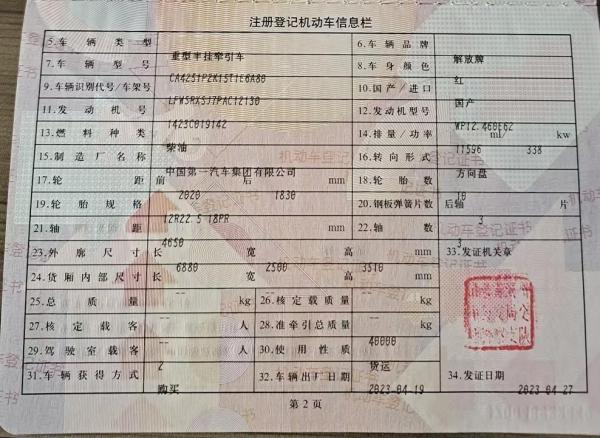 注册登记机动车信息栏
5.车辆类型 重型半挂牵引车 6.车辆品牌 解放牌
7.车辆型号 CA4251P2K15T1E6A80 8.车身颜色 红
9.车辆识别代号/车架号 LFWSRXSJ7PAC12130 10.国产/进口 国产
11.发动机号 1423C019142 12.发动机型号 WP12.460E62
13.燃料种类 柴油 14.排量/功率 11596 ml/ 338 kw
15.制造厂名称 中国第一汽车集团有限公司 16.转向形式 方向盘
17.轮距 前 2020 后 1830 mm 18.轮胎数 10
19.轮胎规格 12R22.5 18PR 20.钢板弹簧片数 后轴 3 片
21.轴距 4650 mm 22.轴数 3
23.外廓尺寸 长 6880 宽 2500 高 3510 mm 33.发证机关章
24.货厢内部尺寸 长 -- 宽 -- 高 -- mm
25.总质量 -- kg 26.核定载质量 -- kg
27.核定载客 -- 人 28.准牵引总质量 40000 kg
29.驾驶室载客 2 人 30.使用性质 货运
31.车辆获得方式 购买 32.车辆出厂日期 2023-04-19 34.发证日期 2023-04-27
第2页